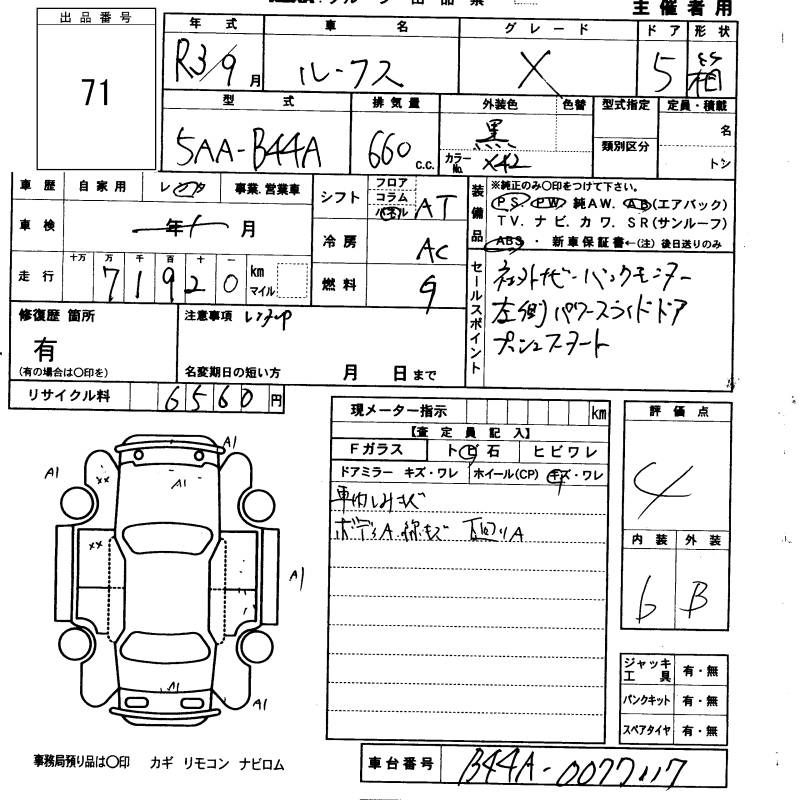 主催者用
出品番号
71
年式 車名 グレード ドア 形状
R3/9月 ルークス X 5 箱
型式 排気量 外装色 色替 型式指定 定員・積載
5AA-B44A 660 c.c. 黒 名
カラーNo. X42 類別区分 トン
車歴 自家用 レンタ 事業.営業車
車検 年 月
走行 十万 万 千 百 十 一
71920 km マイル
シフト フロア コラム パネル AT
冷房 AC
燃料 G
装備品 ※純正のみ○印をつけて下さい。
PS. PW 純AW. AB(エアバック)
TV. ナビ. カワ. SR(サンルーフ)
ABS ・ 新車保証書←(注) 後日送りのみ
セールスポイント
社外ナビ・バックモニター
左側パワースライドドア
プッシュスタート
修復歴 箇所
有
(有の場合は○印を)
注意事項 レンタUP
名変期日の短い方 月 日まで
リサイクル料 6560円
現メーター指示 km
【査定員記入】
Fガラス トビ石 ヒビワレ
ドアミラー キズ・ワレ ホイール(CP) キズ・ワレ
車内しみキズ
ボディA.線キズ 下回りA
評価点
4
内装 外装
b B
ジャッキ工具 有・無
パンクキット 有・無
スペアタイヤ 有・無
A1
A1
A1
xx
xx
A1
A1
A1
事務局預り品は○印 カギ リモコン ナビロム
車台番号 B44A-0077117